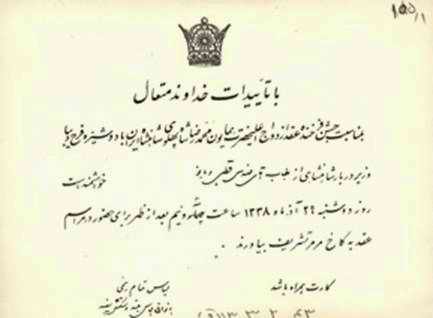 ۱۵۵/۱
با تأییدات خداوند متعال
بمناسبت جشن فرخنده عقد ازدواج اعلیحضرت همایون محمدرضا شاه پهلوی شاهنشاه ایران با دوشیزه فرح دیبا
وزیر دربار شاهنشاهی از جناب آقای مهندس قطبی و بانو خواهشمند است
روز دوشنبه ۲۹ آذر ماه ۱۳۳۸ ساعت چهار و نیم بعد از ظهر برای حضور در مراسم
عقد به کاخ مرمر تشریف بیاورند.
کارت همراه باشد لباس تمام رسمی
بانوان